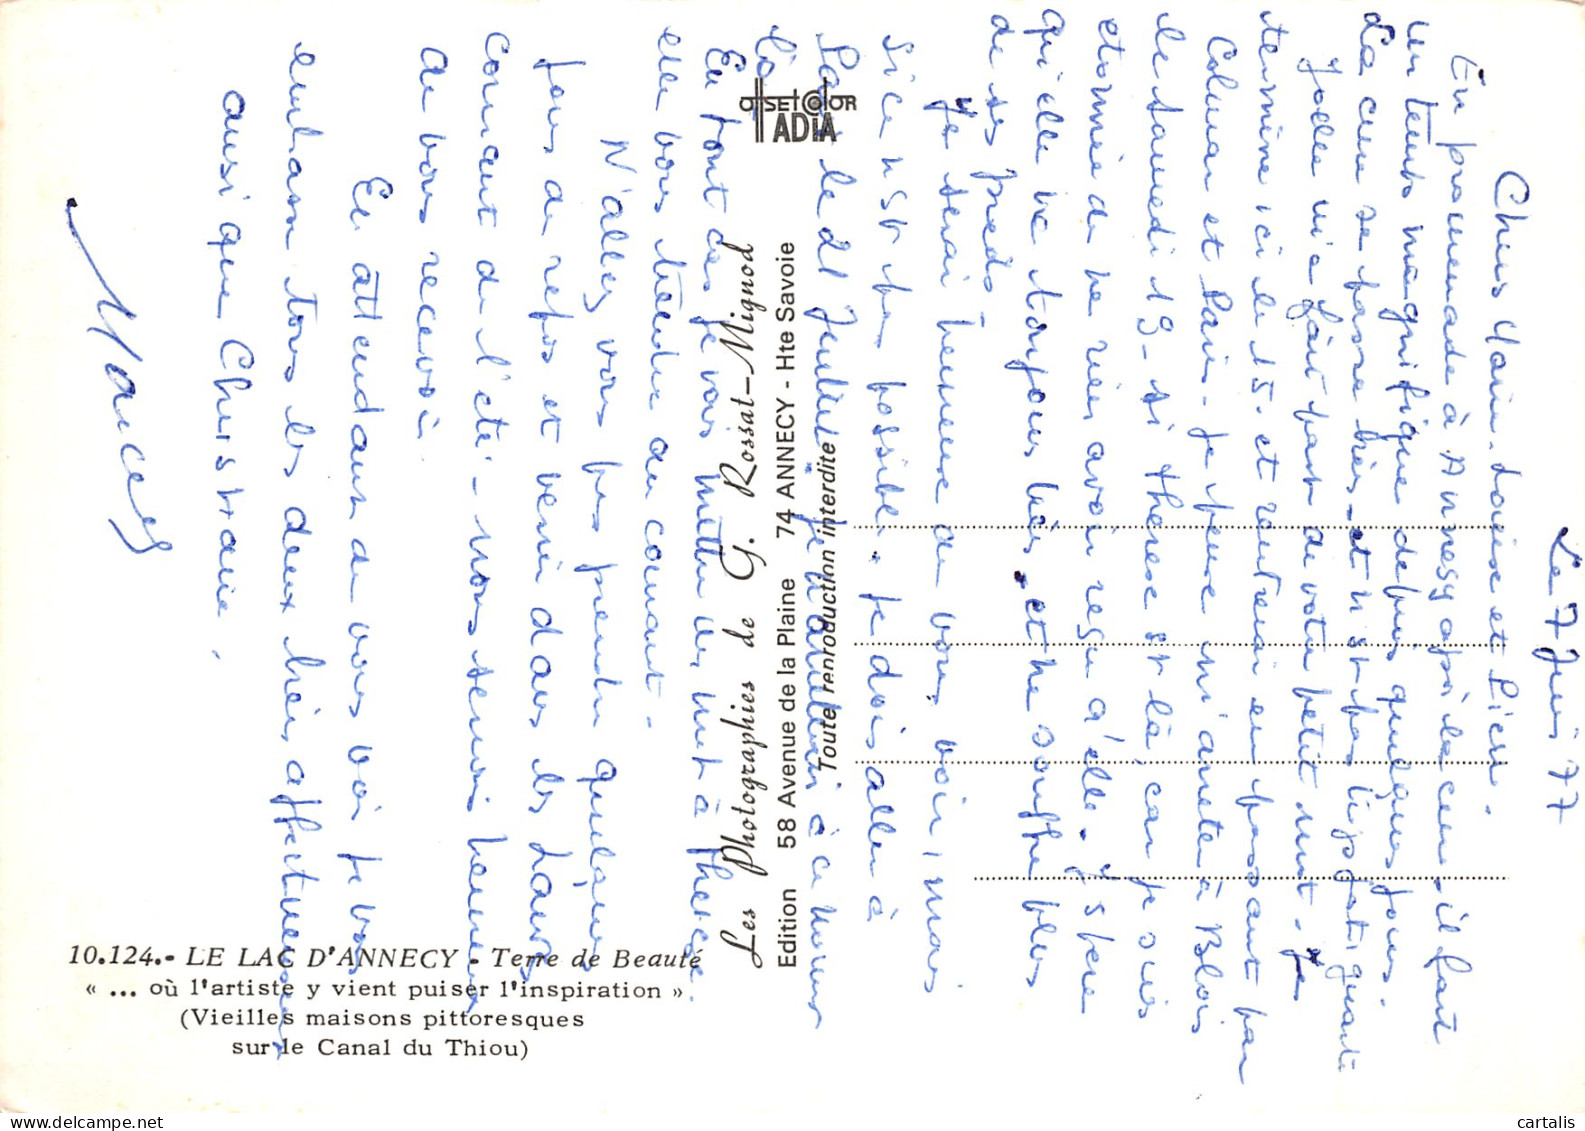 Le 7 Juin 77
Chers Marie-Louise et Pierre.
En promenade à Annecy après la cure. il fait
un temps magnifique depuis quelques jours.
La cure se passe bien - et n'est pas trop fatiguante
Joelle m'a fait part de votre petit mot. Je
termine ici le 15. et rentrerai en passant par
Colmar et Paris. Je pense m'arreter à Blois
le samedi 19 - si therese est là, car je suis
etonnée de ne rien avoir reçu d'elle. J'espere
qu'elle va toujours bien. et ne souffre plus
de ses pieds -
Je serai heureuse de vous voir, mais
si ce n'est pas possible. Je dois aller à
Paris le 21 Juillet. Je m'arreterai à ce moment
là
En tout cas je vais mettre un mot à therese.
elle vous tiendra au courant.
N'allez vous pas prendre quelques
jours de repos et venir dans les Landes
courant de l'été. nous serions heureux
de vous recevoir
En attendant de vous voir je vous
embrasse tous les deux bien affectueusement
ainsi que Christiane.
OFFSET COLOR
ADIA
Les Photographies de G. Rossat-Mignod
Edition 58 Avenue de la Plaine 74 ANNECY - Hte Savoie
Toute reproduction interdite
10.124.- LE LAC D'ANNECY - Terre de Beauté
« ... où l'artiste y vient puiser l'inspiration »
(Vieilles maisons pittoresques
sur le Canal du Thiou)
cartalis